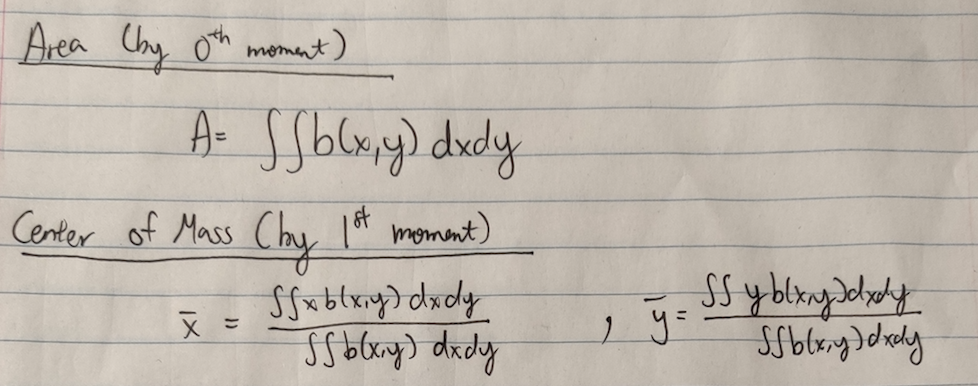 Area (by 0th moment)
A= ∫∫b(x,y) dxdy
Center of Mass (by 1st moment)
x̄ = ∫∫xb(x,y) dxdy / ∫∫b(x,y) dxdy , ȳ = ∫∫yb(x,y)dxdy / ∫∫b(x,y)dxdy